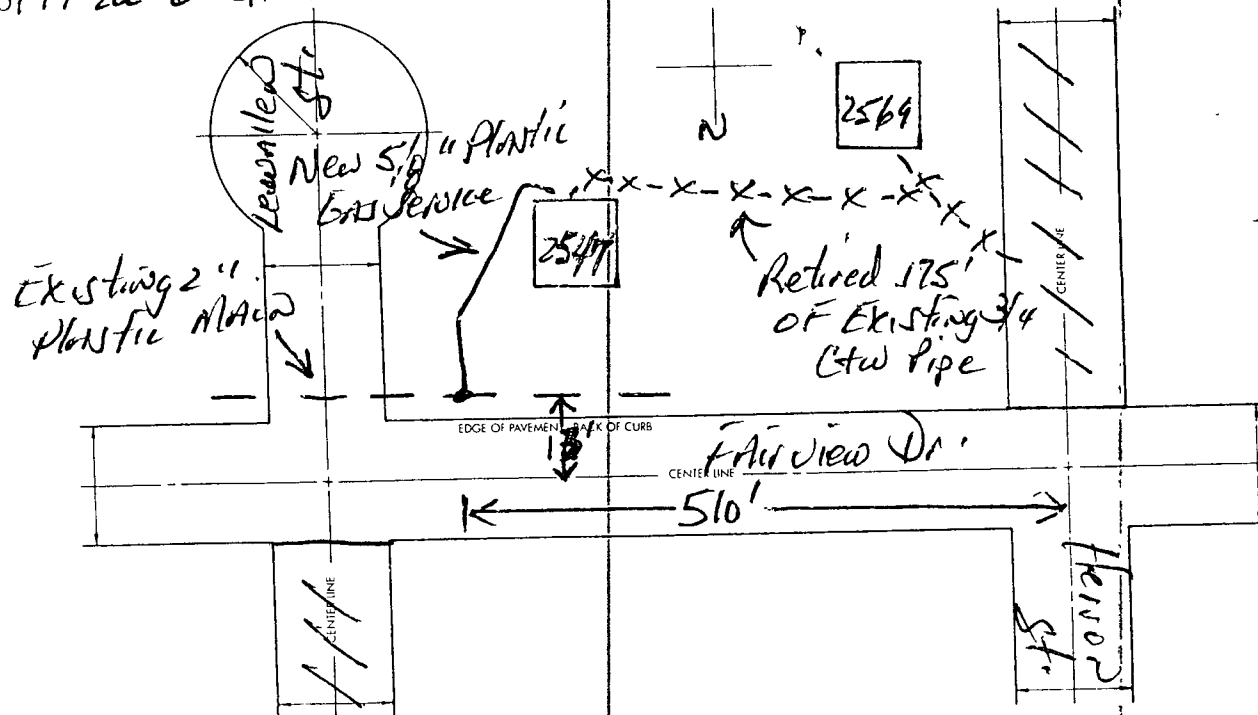 St.
New 5/8" Plastic
Gas Service
2547
2569
N
Existing 2".
Plastic Main
Retired 175'
OF Existing 3/4
Ctw Pipe
CENTER LINE
EDGE OF PAVEMENT BACK OF CURB
Fairview Dr.
CENTER LINE
510'
CENTER LINE
St.